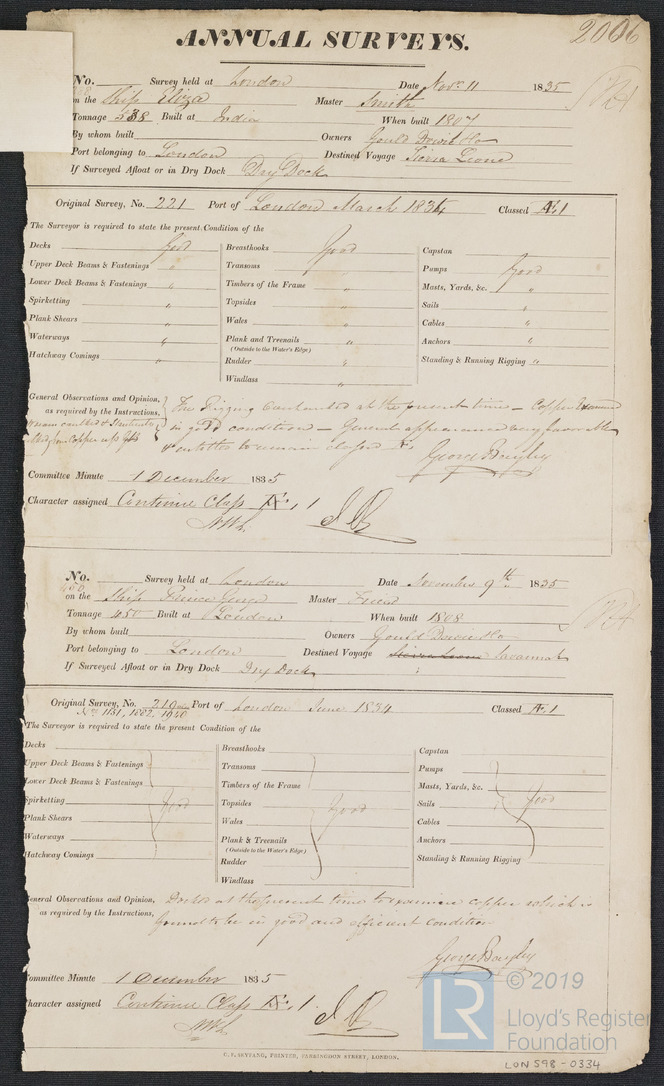 2006
ANNUAL SURVEYS.
No. Survey held at London Date Novr. 11 1835
on the Ship Eliza Master Smith
Tonnage 538 Built at India When built 1807
By whom built Owners Gould Dowie & Co
Port belonging to London Destined Voyage Sierra Leone
If Surveyed Afloat or in Dry Dock Dry Dock
Original Survey, No. 221 Port of London March 1834 Classed Æ 1
The Surveyor is required to state the present Condition of the
Decks good Breasthooks good Capstan
Upper Deck Beams & Fastenings " Transoms " Pumps good
Lower Deck Beams & Fastenings " Timbers of the Frame " Masts, Yards, &c. "
Spirketting " Topsides " Sails "
Plank Shears " Wales " Cables "
Waterways " Plank and Treenails " Anchors "
(Outside to the Water's Edge)
Hatchway Comings " Rudder " Standing & Running Rigging "
Windlass "
General Observations and Opinion, as required by the Instructions,
The Rigging Overhauled at the present time - Copper Examined
in good condition - General appearance very favorable
& entitled to remain classed Æ
George Bayley
Committee Minute 1 December 1835
Character assigned Continue Class Æ 1
No. Survey held at London Date November 9th. 1835
450
on the Ship Prince George Master Friend
Tonnage 450 Built at London When built 1808
By whom built Owners Gould Dowie & Co
Port belonging to London Destined Voyage Sierra Leone Savannah
If Surveyed Afloat or in Dry Dock Dry Dock
Original Survey, No. 210 Port of London June 1834 Classed Æ 1
No. 1131, 1802, 1940
The Surveyor is required to state the present Condition of the
Decks Breasthooks Capstan
Upper Deck Beams & Fastenings Transoms Pumps
Lower Deck Beams & Fastenings Timbers of the Frame Masts, Yards, &c.
Spirketting good Topsides good Sails good
Plank Shears Wales Cables
Waterways Plank & Treenails Anchors
(Outside to the Water's Edge)
Hatchway Comings Rudder Standing & Running Rigging
Windlass
General Observations and Opinion, as required by the Instructions,
Docked at the present time to examine copper which is
found to be in good and efficient condition
George Bayley
Committee Minute 1 December 1835
Character assigned Continue Class Æ 1
C. F. SEYFANG, PRINTER, FARRINGDON STREET, LONDON.
LR © 2019
Lloyd's Register
Foundation
LON598-0334